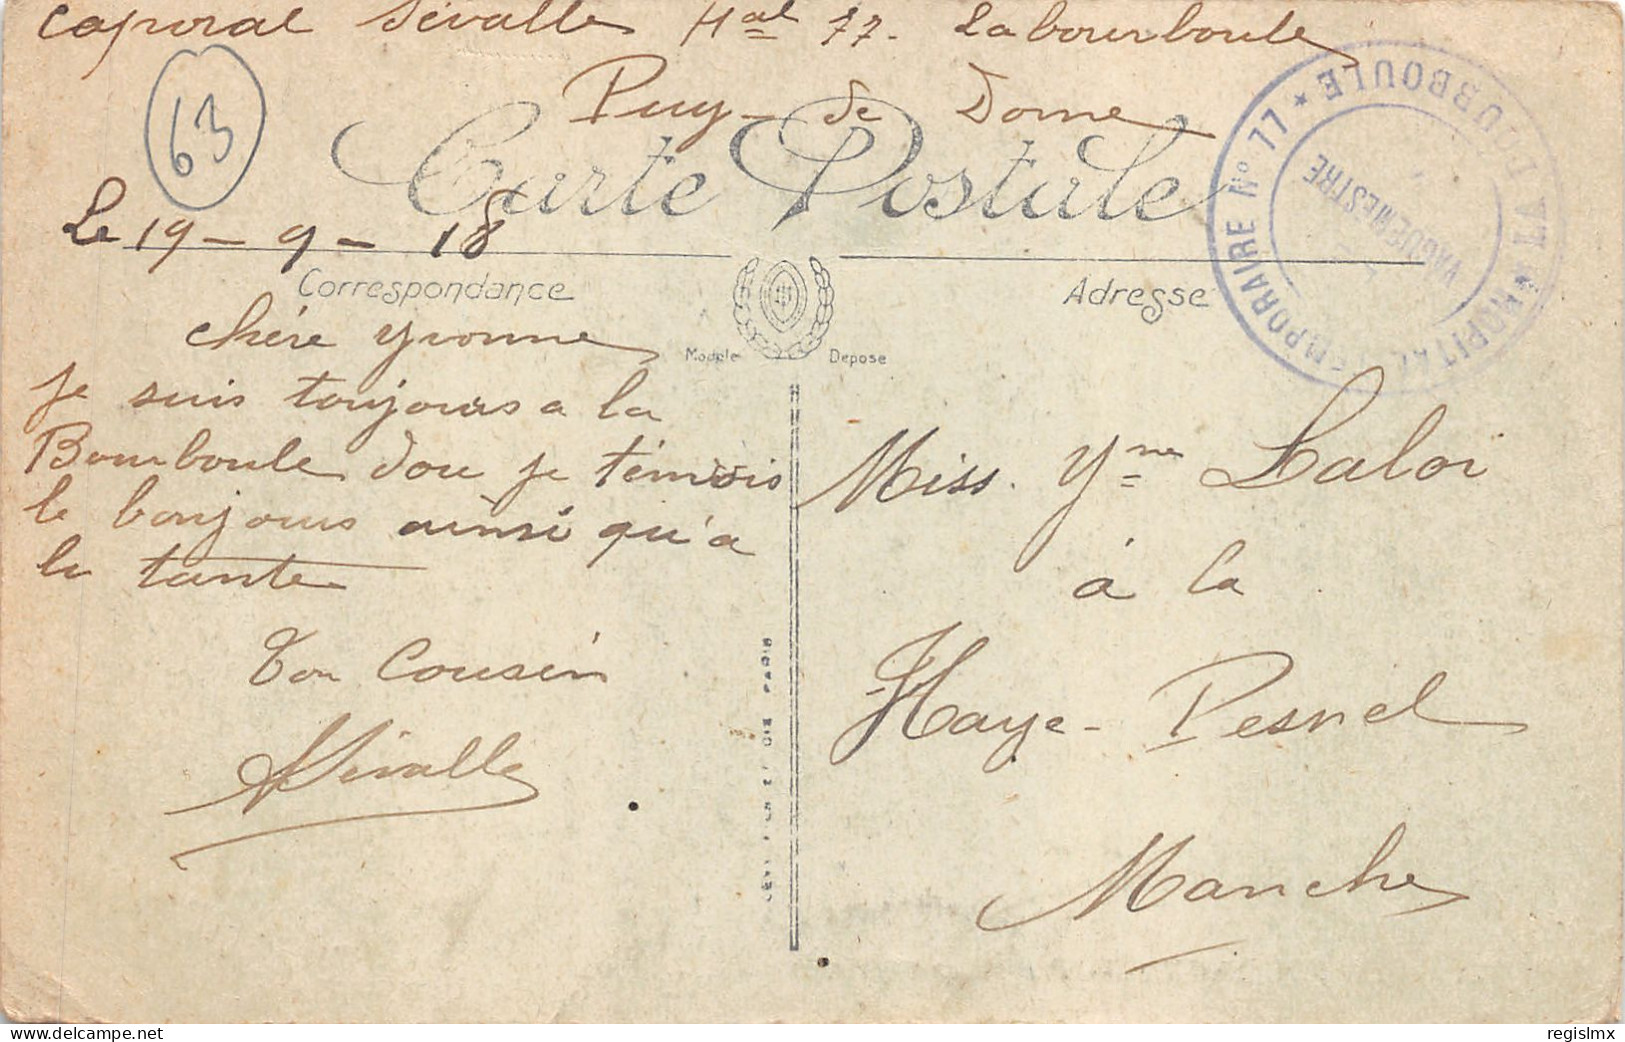 caporal Sévalle Hal 77. Labourboule
Puy-de Dome
63
Carte Postale
Le 19-9-18
HOPITAL TEMPORAIRE N° 77 * LA BOURBOULE *
VAGUEMESTRE
Correspondance
Adresse
Modèle Déposé
chére Yvonne
Je suis toujours a la
Bourboule dou je t'envois
le bonjours ainsi qu'a
la tante
Ton Cousin
Sévalle
Miss. Yne Laloi
à la
Haye-Pesnel
Manche
PARIS
www.delcampe.net
regislmx